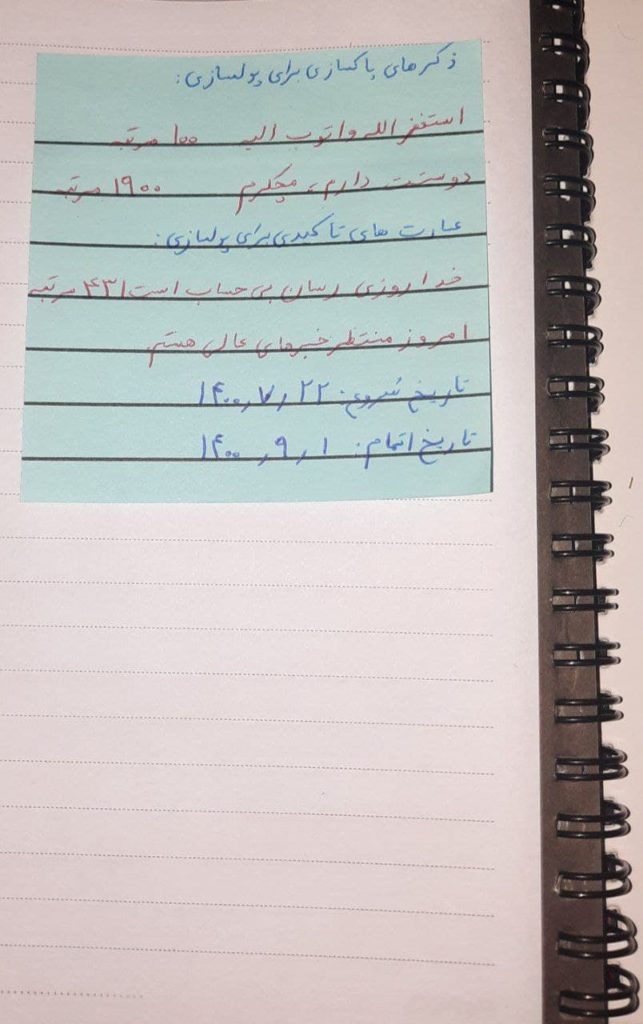 ذکرهای پاکسازی برای پولسازی:
استغفرالله واتوب الیه ۱۰۰ مرتبه
دوستت دارم، مچکرم ۱۹۰۰ مرتبه
عبارت های تاکیدی برای پولسازی:
خدا روزی رسان بی حساب است ۴۳۱ مرتبه
امروز منتظر خبرهای عالی هستم
تاریخ شروع: ۲۲ر۷ر۱۴۰۰
تاریخ اتمام: ۱ر۹ر۱۴۰۰